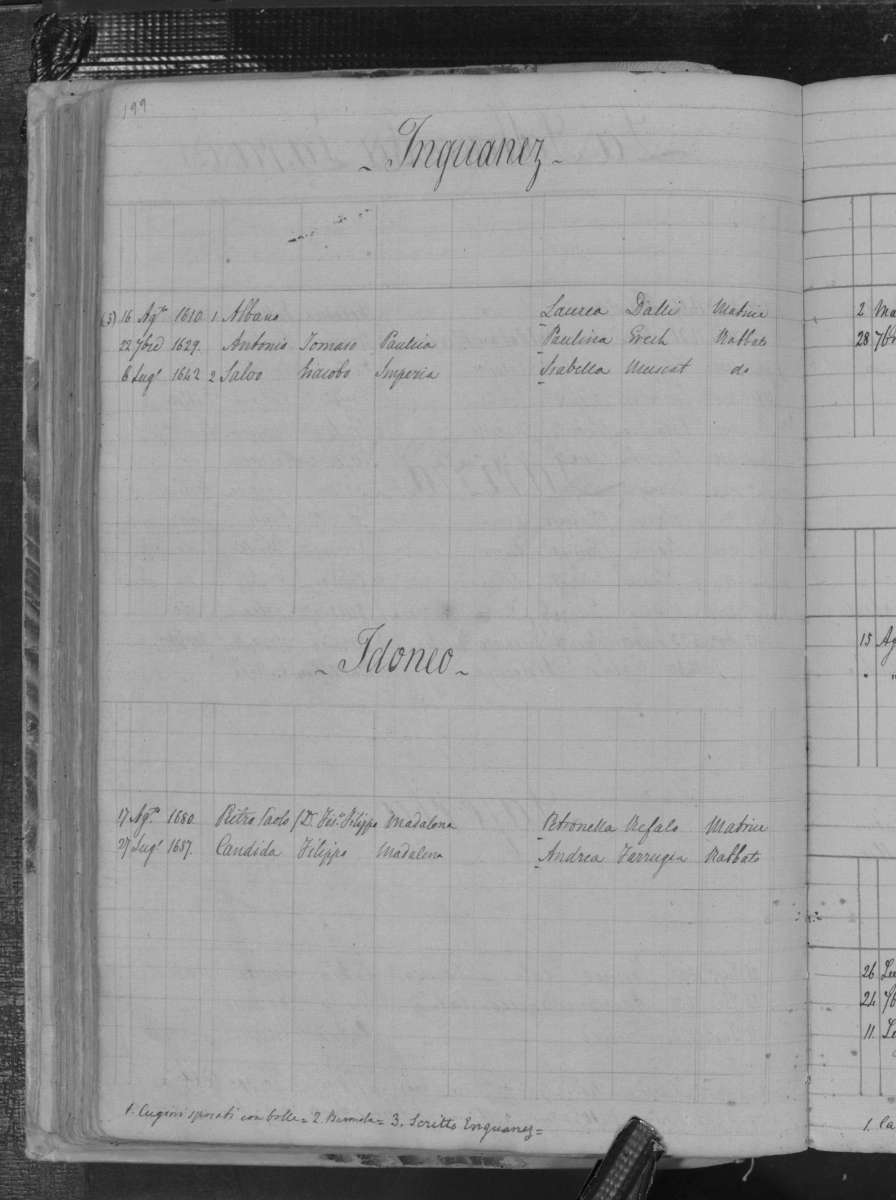 199
- Inguanez -
(3) 16 Agto 1610. 1 Albano Laurea Dalli Matrice
22 7bre 1629. Antonio Tomaso Paulica Paulina Grech Rabbato
6 Lugo 1642 2 Salvo Giacobo Imperia Isabella Muscat do
- Idoneo -
17 Agto 1680. Pietro Paolo (Dr. Fis.o Filippo Madalena Petronella Refalo Matrice
27 Lugo 1687. Candida Filippo Madalena Andrea Farrugia Rabbato
1. Cugini sposati con bolle = 2. = 3. Scritto Enguanez =
2 Ma
28 7br
15 Ag
26
24 7b
11
1. Ca